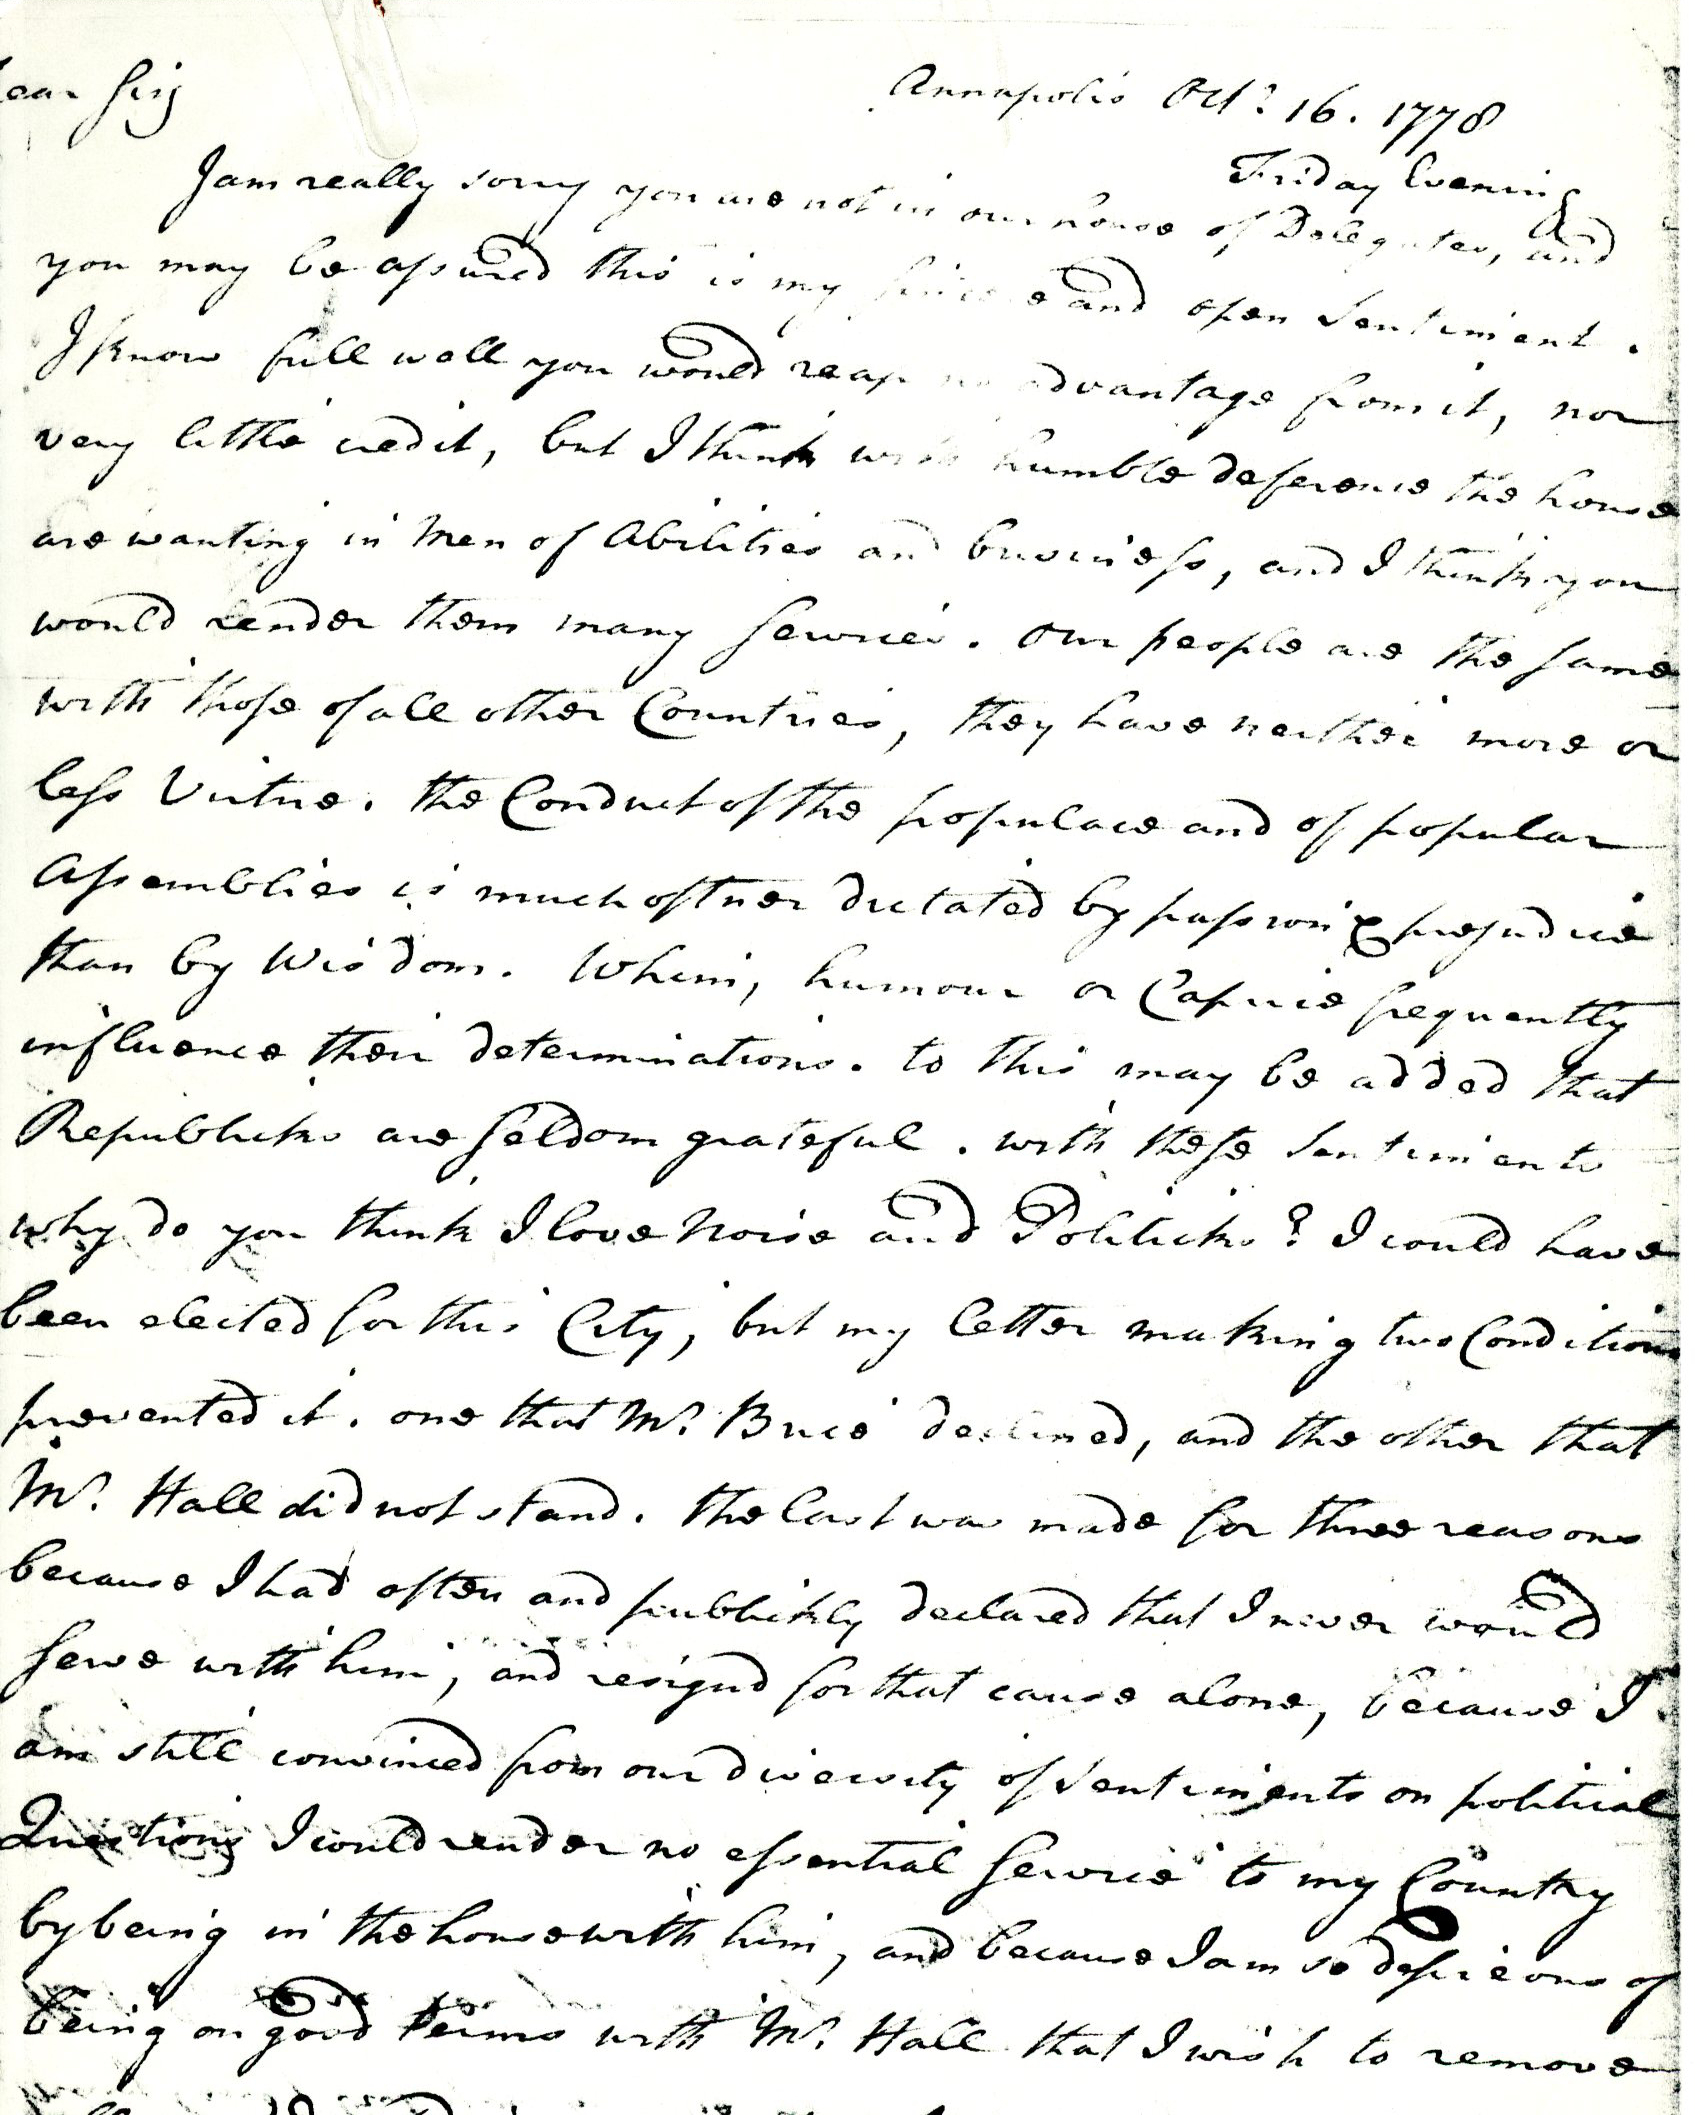 ear Sir,
Annapolis Octr. 16. 1778
Friday Evening
I am really sorry you are not in our house of Delegates, and
you may be assured this is my sincere and open Sentiment.
I know full well you would reap no advantage from it, nor
very little credit, but I think with humble deference the house
are wanting in Men of Abilities and business, and I think you
would render them many Services. Our people are the same
with those of all other Countries, they have neither more or
less Virtue. the Conduct of the populace and of popular
Assemblies is much oftner dictated by passion & prejudice
than by Wisdom. Whim, humour or Caprice frequently
influence their determinations. to this may be added that
Republicks are seldom grateful. with these Sentiments
why do you think I love Noise and Politicks? I could have
been elected for this City, but my letter making two Conditions
prevented it. one that Mr. Brice declined, and the other that
Mr. Hall did not stand. the last was made for three reasons
because I had often and publickly declared that I never would
serve with him, and resignd for that cause alone, because I
am still convinced from our diversity of Sentiments on political
Questions I could render no essential Service to my Country
by being in the house with him, and because I am so desireous of
being on good terms with Mr. Hall that I wish to remove